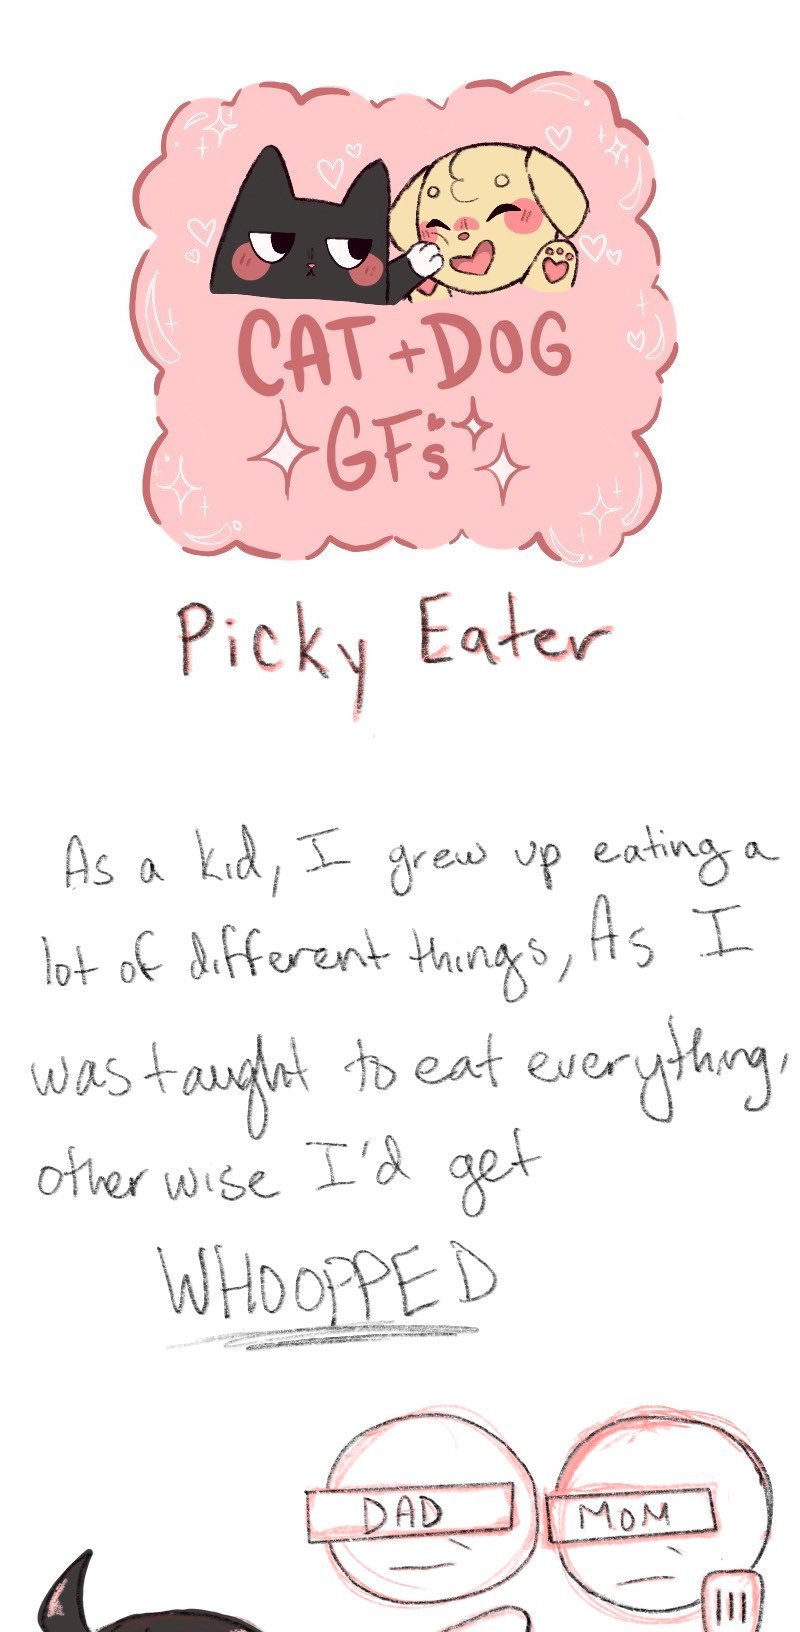 CAT + DOG
GFs
Picky Eater
As a kid, I grew up eating a
lot of different things, As I
was taught to eat everything,
otherwise I'd get
WHOOPPED
DAD
MOM